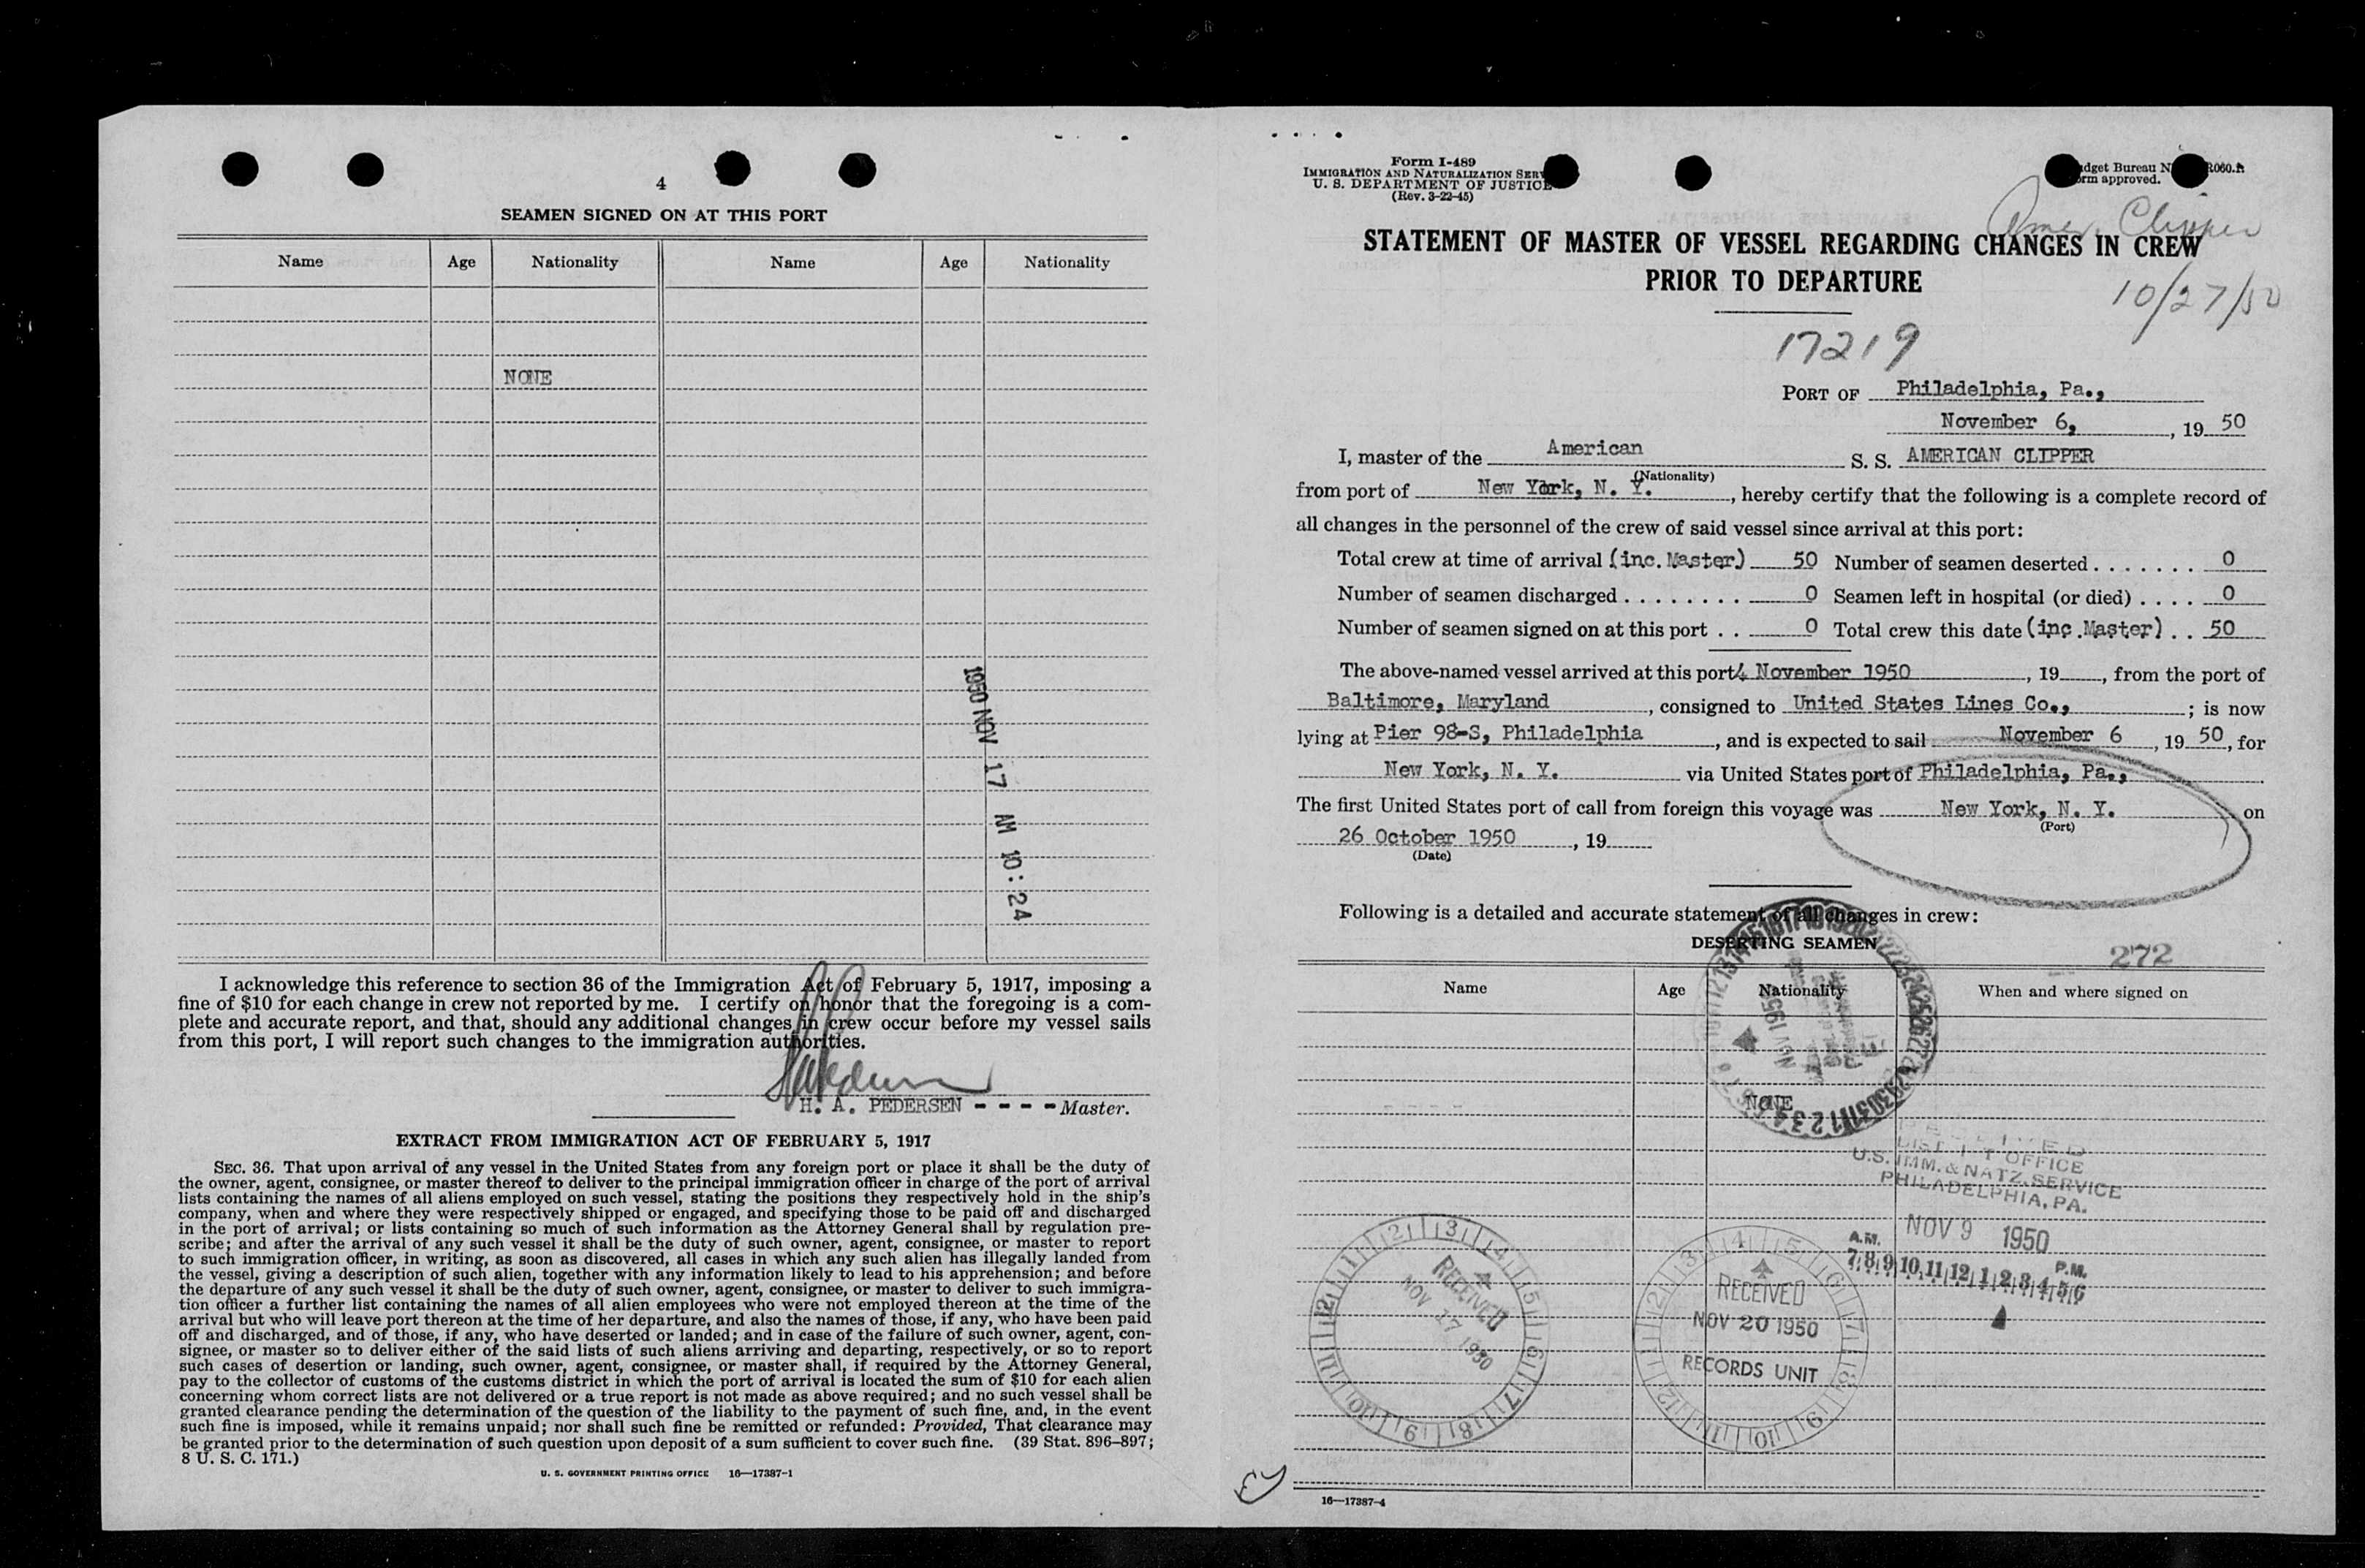 4
SEAMEN SIGNED ON AT THIS PORT
Name Age Nationality Name Age Nationality
NONE
1950 NOV 17 AM 10:24
I acknowledge this reference to section 36 of the Immigration Act of February 5, 1917, imposing a
fine of $10 for each change in crew not reported by me. I certify on honor that the foregoing is a com-
plete and accurate report, and that, should any additional changes in crew occur before my vessel sails
from this port, I will report such changes to the immigration authorities.
H. A. PEDERSEN - - - - Master.
EXTRACT FROM IMMIGRATION ACT OF FEBRUARY 5, 1917
SEC. 36. That upon arrival of any vessel in the United States from any foreign port or place it shall be the duty of
the owner, agent, consignee, or master thereof to deliver to the principal immigration officer in charge of the port of arrival
lists containing the names of all aliens employed on such vessel, stating the positions they respectively hold in the ship's
company, when and where they were respectively shipped or engaged, and specifying those to be paid off and discharged
in the port of arrival; or lists containing so much of such information as the Attorney General shall by regulation pre-
scribe; and after the arrival of any such vessel it shall be the duty of such owner, agent, consignee, or master to report
to such immigration officer, in writing, as soon as discovered, all cases in which any such alien has illegally landed from
the vessel, giving a description of such alien, together with any information likely to lead to his apprehension; and before
the departure of any such vessel it shall be the duty of such owner, agent, consignee, or master to deliver to such immigra-
tion officer a further list containing the names of all alien employees who were not employed thereon at the time of the
arrival but who will leave port thereon at the time of her departure, and also the names of those, if any, who have been paid
off and discharged, and of those, if any, who have deserted or landed; and in case of the failure of such owner, agent, con-
signee, or master so to deliver either of the said lists of such aliens arriving and departing, respectively, or so to report
such cases of desertion or landing, such owner, agent, consignee, or master shall, if required by the Attorney General,
pay to the collector of customs of the customs district in which the port of arrival is located the sum of $10 for each alien
concerning whom correct lists are not delivered or a true report is not made as above required; and no such vessel shall be
granted clearance pending the determination of the question of the liability to the payment of such fine, and, in the event
such fine is imposed, while it remains unpaid; nor shall such fine be remitted or refunded: Provided, That clearance may
be granted prior to the determination of such question upon deposit of a sum sufficient to cover such fine. (39 Stat. 896–897;
8 U. S. C. 171.)
U. S. GOVERNMENT PRINTING OFFICE 16—17387-1
Form I-489
IMMIGRATION AND NATURALIZATION SERV
U. S. DEPARTMENT OF JUSTICE
(Rev. 3-22-45)
dget Bureau N R060.
rm approved.
Amer. Clipper
STATEMENT OF MASTER OF VESSEL REGARDING CHANGES IN CREW
PRIOR TO DEPARTURE
10/27/50
17219
PORT OF Philadelphia, Pa.,
November 6, , 19 50
I, master of the American S. S. AMERICAN CLIPPER
(Nationality)
from port of New York, N. Y. , hereby certify that the following is a complete record of
all changes in the personnel of the crew of said vessel since arrival at this port:
Total crew at time of arrival (inc. Master) 50 Number of seamen deserted . . . . . . . 0
Number of seamen discharged . . . . . . . . 0 Seamen left in hospital (or died) . . . . 0
Number of seamen signed on at this port . . 0 Total crew this date (inc. Master) . . 50
The above-named vessel arrived at this port 4 November 1950 , 19 , from the port of
Baltimore, Maryland , consigned to United States Lines Co., ; is now
lying at Pier 98-S, Philadelphia , and is expected to sail November 6 , 19 50, for
New York, N. Y. via United States port of Philadelphia, Pa.,
The first United States port of call from foreign this voyage was New York, N. Y. on
(Port)
26 October 1950 , 19
(Date)
Following is a detailed and accurate statement of all changes in crew:
DESERTING SEAMEN
272
Name Age Nationality When and where signed on
NONE
U.S. IMM. & NATZ. SERVICE
PHILADELPHIA, PA.
NOV 9 1950
A.M. P.M.
7 8 9 10 11 12 1 2 3 4 5 6
RECEIVED
NOV 17 1950
RECEIVED
NOV 20 1950
RECORDS UNIT
16—17387-4